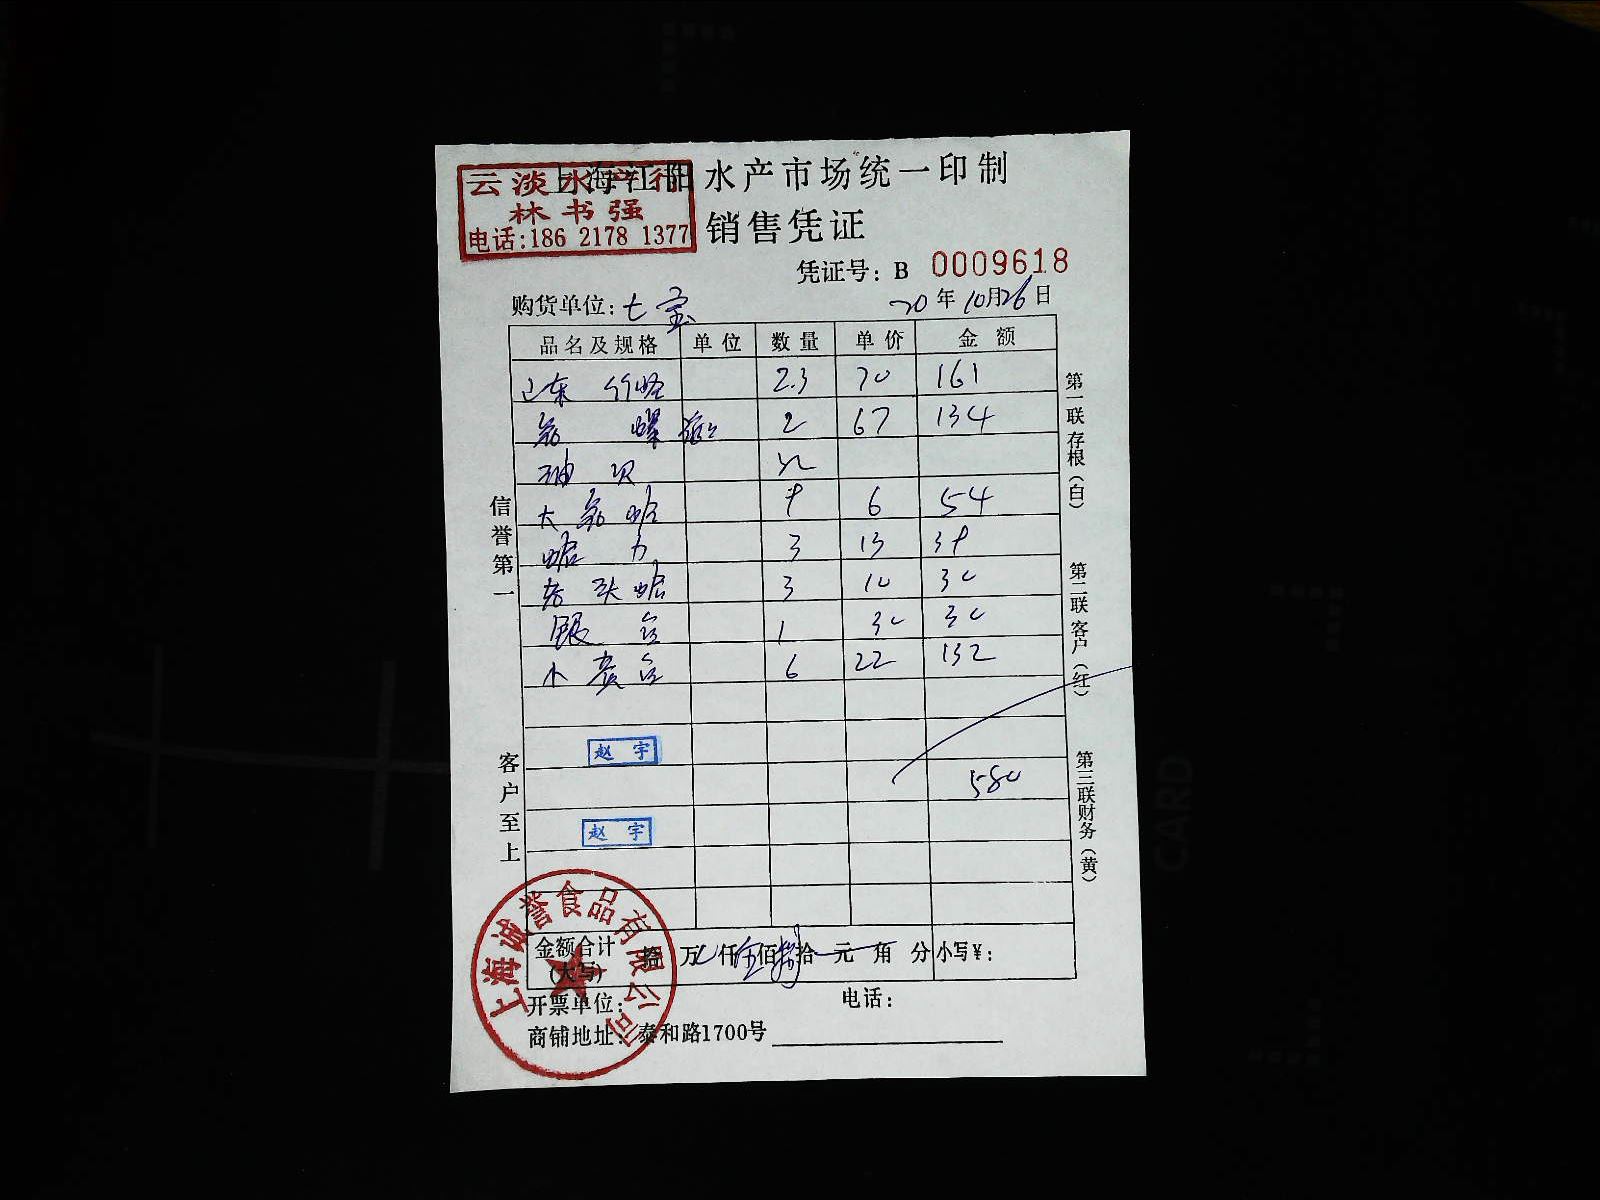 上海江阳水产市场统一印制
云淡水产行
林书强
电话:186 2178 1377
销售凭证
凭证号: B 0009618
购货单位: 七宝
20年10月26日
品名及规格 单位 数量 单价 金额
山东 竹蛏 2.3 70 161
螺 2 67 134
贝
大 蛤 9 6 54
3 13 39
老头蛤 3 10 30
银 1 30 30
小黄 6 22 132
赵宇
580
赵宇
金额合计(大写) 拾 万 仟 伍 佰 捌 拾 元 角 分 小写¥:
开票单位: 电话:
商铺地址: 泰和路1700号
上海诚誉食品有限公司
信誉第一
客户至上
第一联存根(白)
第二联客户(红)
第三联财务(黄)
CARD